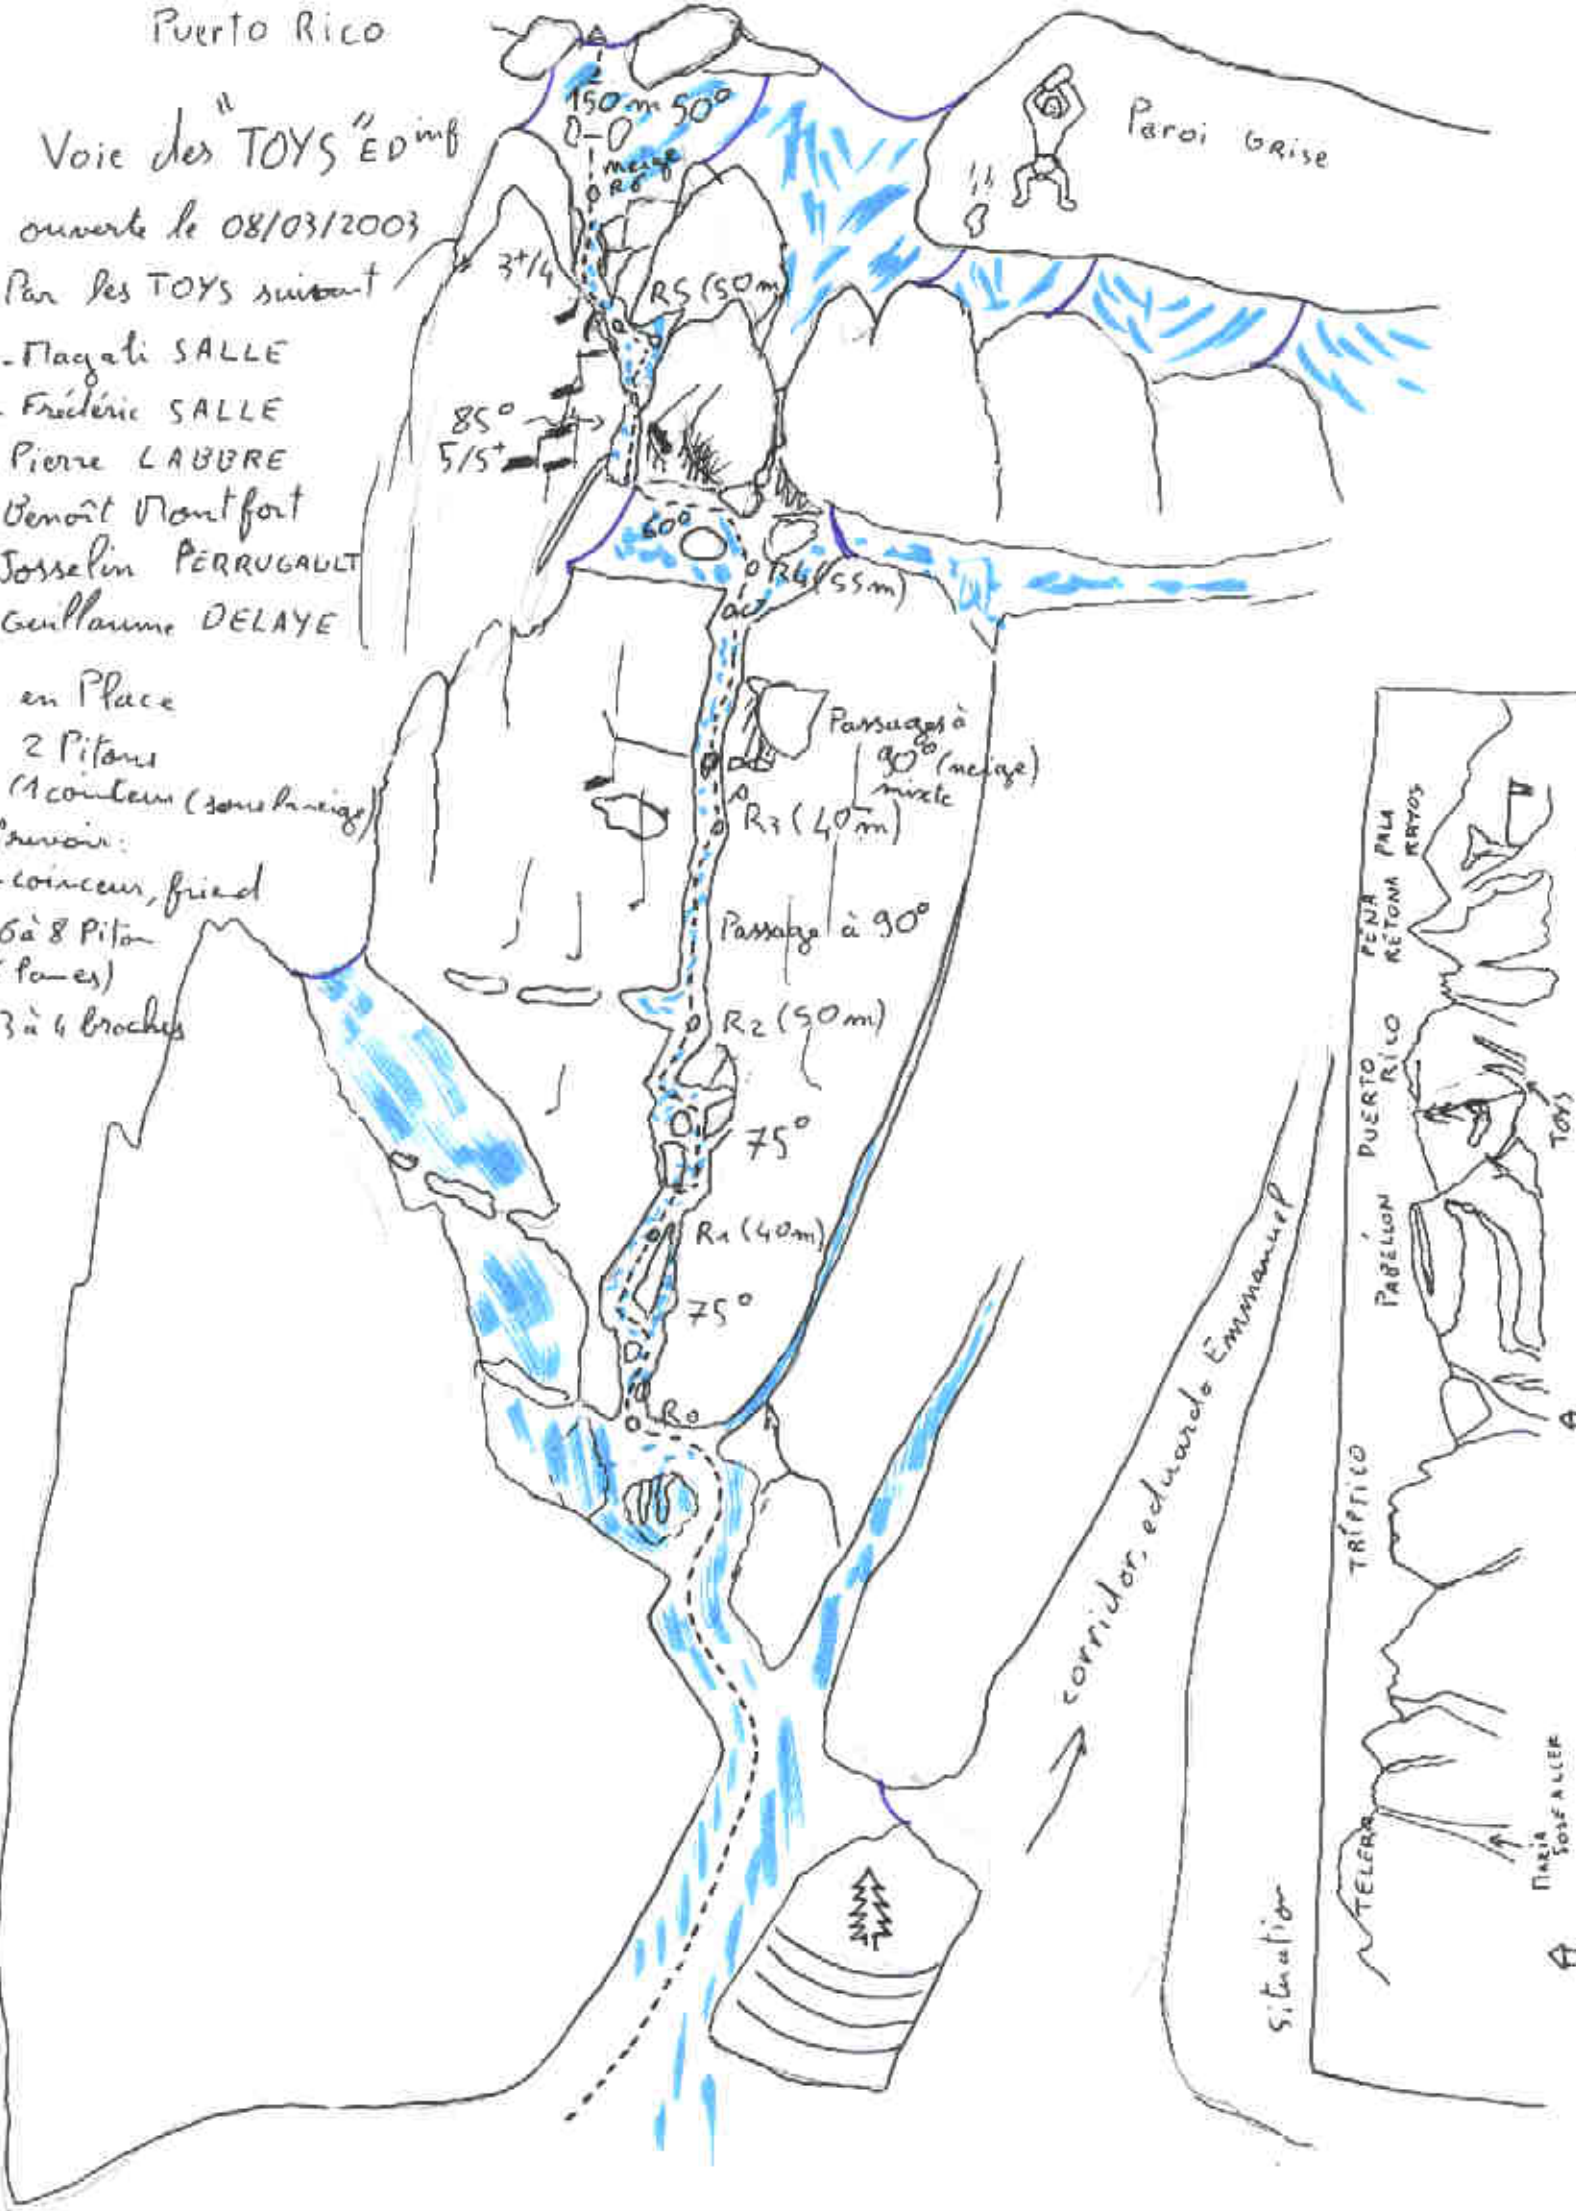 Puerto Rico
Voie des "TOYS" ED inf
ouverte le 08/03/2003
Par les TOYS suivant
- Magali SALLE
- Frédéric SALLE
Pierre LABBRE
Benoît Montfort
Josselin PERRUGAULT
Guillaume DELAYE
en Place
2 Pitons
(1 coinceur (sous la neige)
coinceur, friend
6 à 8 Piton
3 à 4 broches
150 m 50°
neige
R6
Paroi GRISE
3+/4
R5 (50m)
85°
5/5+
60°
R4 (55m)
Passages à
90° (neige)
mixte
R3 (40m)
Passage à 90°
R2 (50m)
75°
R1 (40m)
75°
R0
corridor, eduardo Emmanuel
situation
TELERA
MARIA
JOSE ALLER
TRÍPTICO
PABELLON
PUERTO
RICO
TOYS
PENA
RETONA
PALA
RAYOS